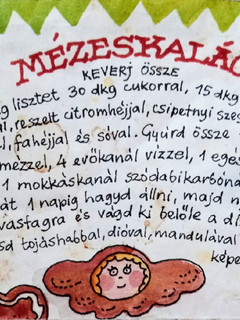 MÉZESKALÁC
KEVERJ ÖSSZE
g lisztet 30 dkg cukorral, 15 dkg
al, reszelt citromhéjjal, csipetnyi szeg
l, fahéjjal és sóval. Gyúrd össze
mézzel, 4 evőkanál vízzel, 1 egés
1 mokkáskanál szódabikarbóna
át 1 napig hagyd állni, majd n
vastagra és vágd ki belőle a dí
sd tojáshabbal, dióval, mandulával
képe